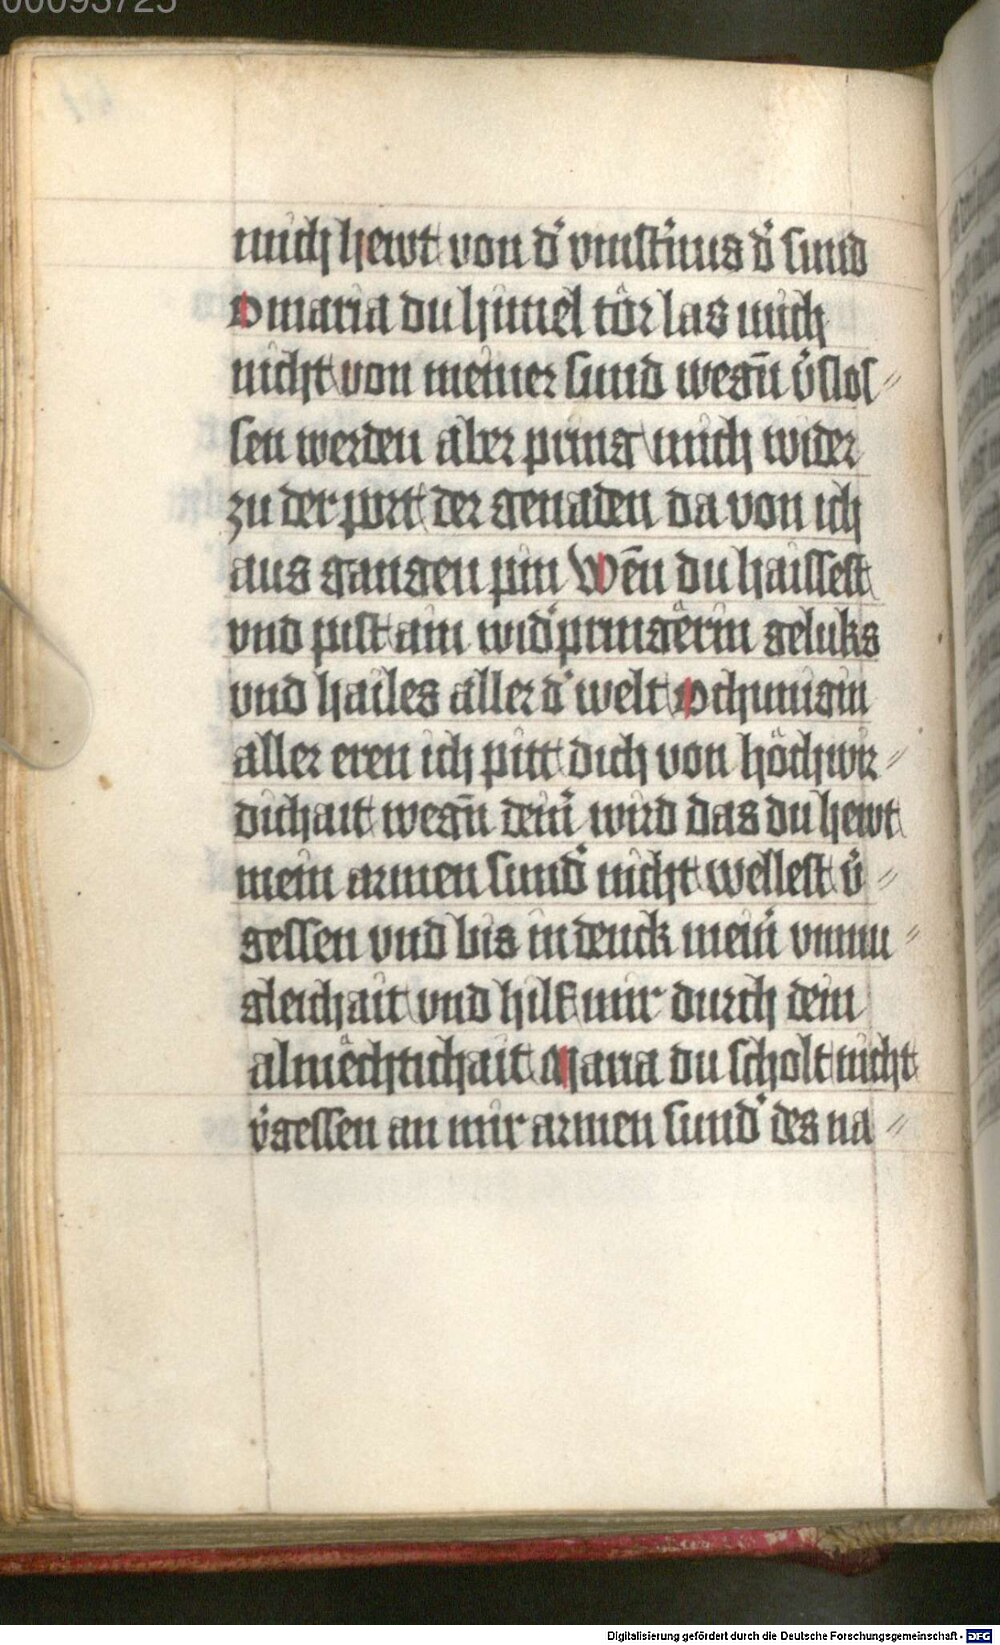 00093725
mich hewt von d᾽ vinst᾽nus d᾽ sund
O maria du himel tör las mich
nicht von meiner sund wegn̄ v᾽slos〃
sen werden aber pring mich wider
zu der port der genaden da von ich
aus gangen pin Wēn du haissest
vnd pist ain wid᾽pringërin geluks
vnd hailes aller d᾽ welt O chunigin
aller eren ich pitt dich von höchwir〃
dichait wegn̄ dein᾽ wird das du hewt
mein armen sund᾽ nicht wellest v᾽〃
gessen vnd bis indenck mein᾽ vnmu〃
gleichait vnd hilf mir durch dein
almëchtichait Maria du scholt nicht
v᾽gessen an mir armen sund᾽ des na〃
Digitalisierung gefördert durch die Deutsche Forschungsgemeinschaft - DFG